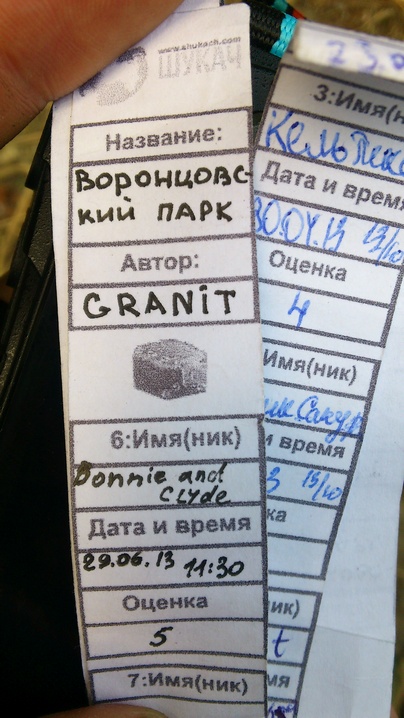 www.shukach.com
ШУКАЧ
Название:
ВОРОНЦОВС-
КИЙ ПАРК
Автор:
GRANiT
6:Имя(ник)
Bonnie and
Clyde
Дата и время
29.06.13 11:30
Оценка
5
7:Имя(ник)
3:Имя(н
Дата и время
30.04.13 13/10
Оценка
4
Имя(ник)
и время
3 15/10
ка
ик)
t
мя